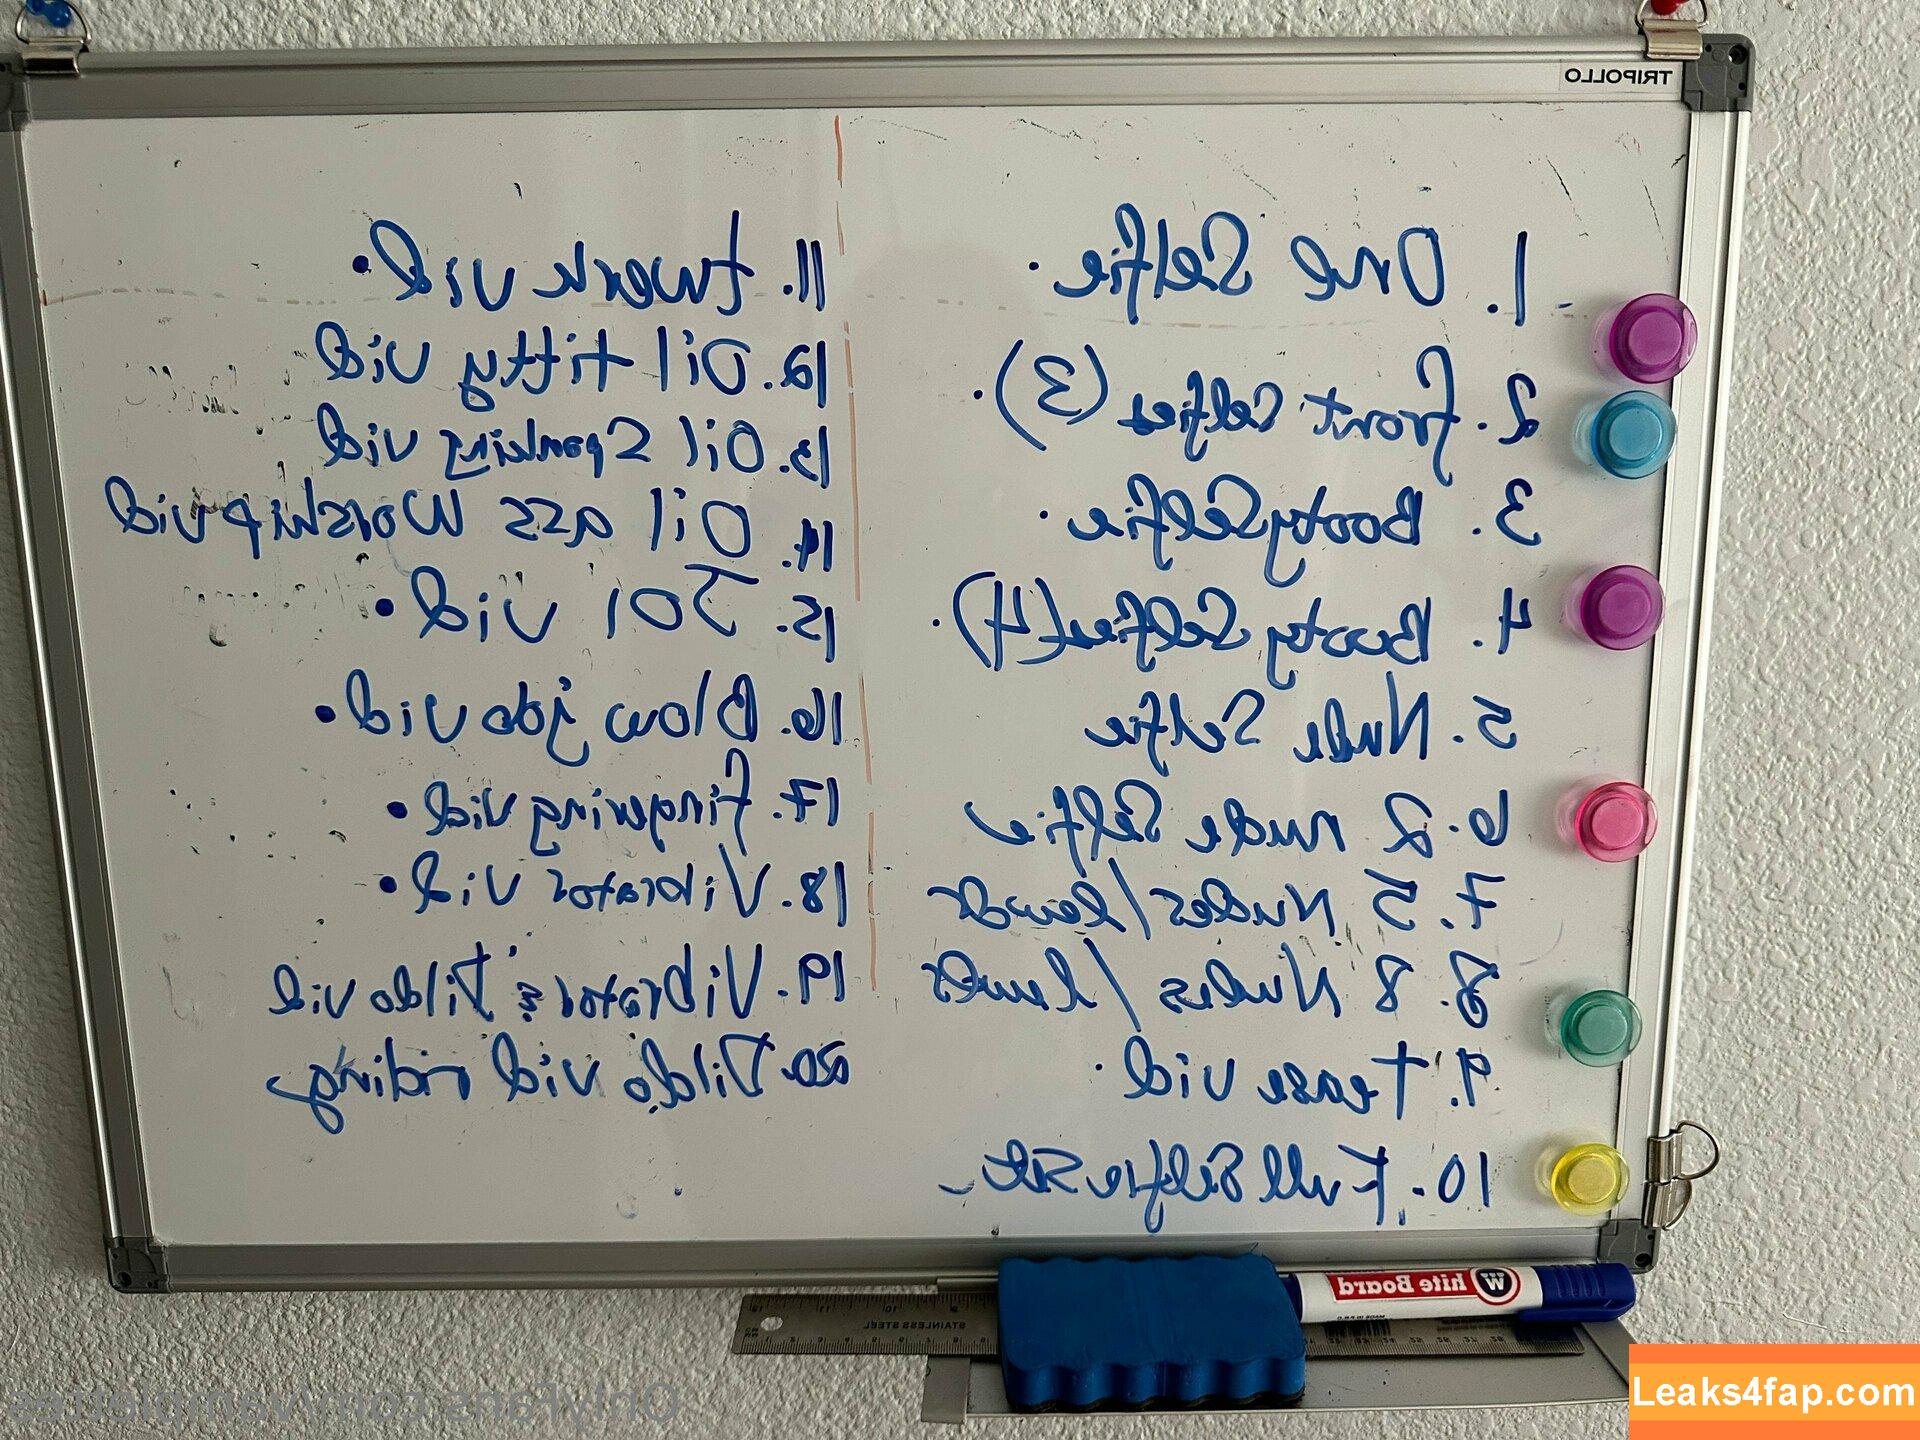 TRIPOLLO
1. One Selfie.
2. front selfies (3).
3. Booty Selfie.
4. Booty Selfies (4).
5. Nude Selfie
6. 2 nude Selfie
7. 5 Nudes/lewds
8. 8 Nudes/lewds
9. Tease vid.
10. Full Selfie set
11. twerk vid.
12. Oil titty vid
13. Oil Spanking vid
14. Oil ass Worship vid
15. JOI vid.
16. Blow job vid.
17. fingering vid.
18. Vibrator vid.
19. Vibrator & Dildo vid
20. Dildo vid riding
White Board
STAINLESS STEEL
OnlyFans.com/vampiettes
Leaks4fap.com